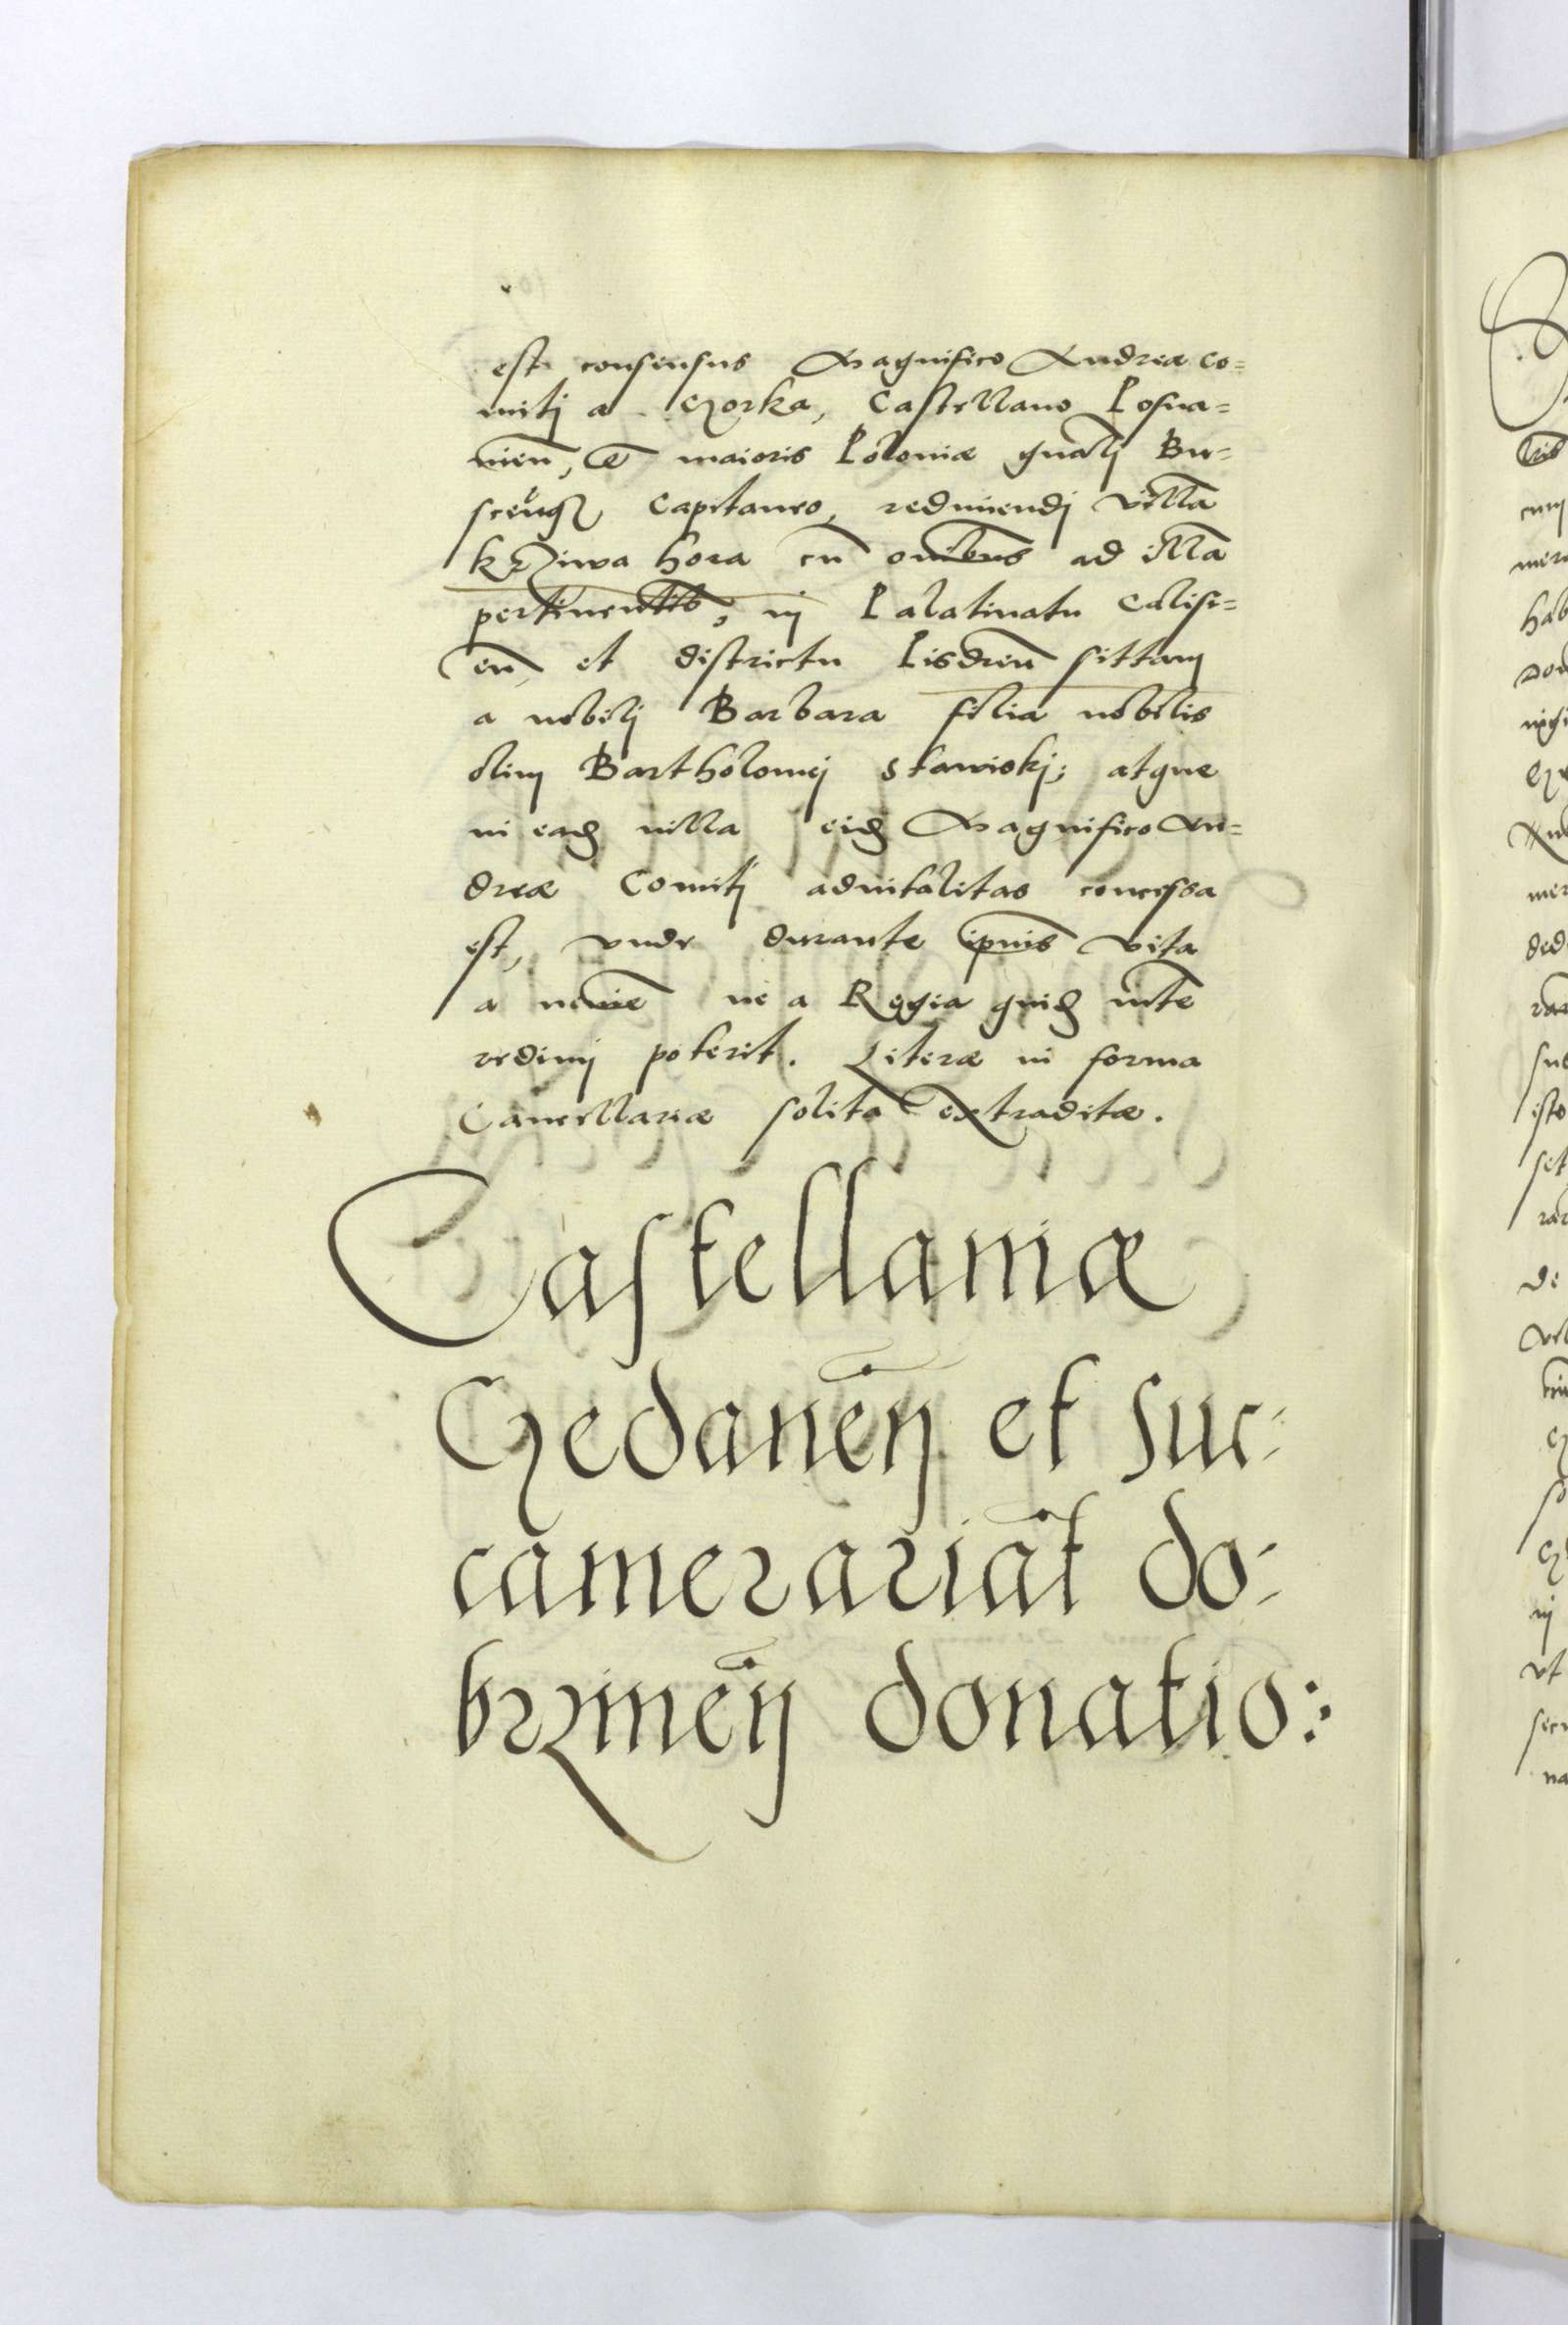 est consensus Magnifico Andreæ co=
mitj a Gorka, Castellano Posna=
nien̄, et maioris Poloniæ gn̄alj Bu=
scen̄q3 Capitaneo, redimendj villā
krziwa hora cū om̄ibus ad illā
pertinentib9, in Palatinatu Calisi=
en̄ et districtu Pisdren̄ sittam
a nobilj Barbara filia nobilis
olim Bartholomej Stawiskj; atque
in eadȝ villa eidȝ Magnifico An=
dreæ Comitj aduitalitas concessa
est, vnde durante ip̄ius vita
a nemīe ne a Regia quidȝ mt̄e
redimj poterit. Literæ in forma
Cancellariæ solita extraditæ.
Castellaniæ
Gedanen̄ et Suc=
camerariāt do=
brzinen̄ donatio: